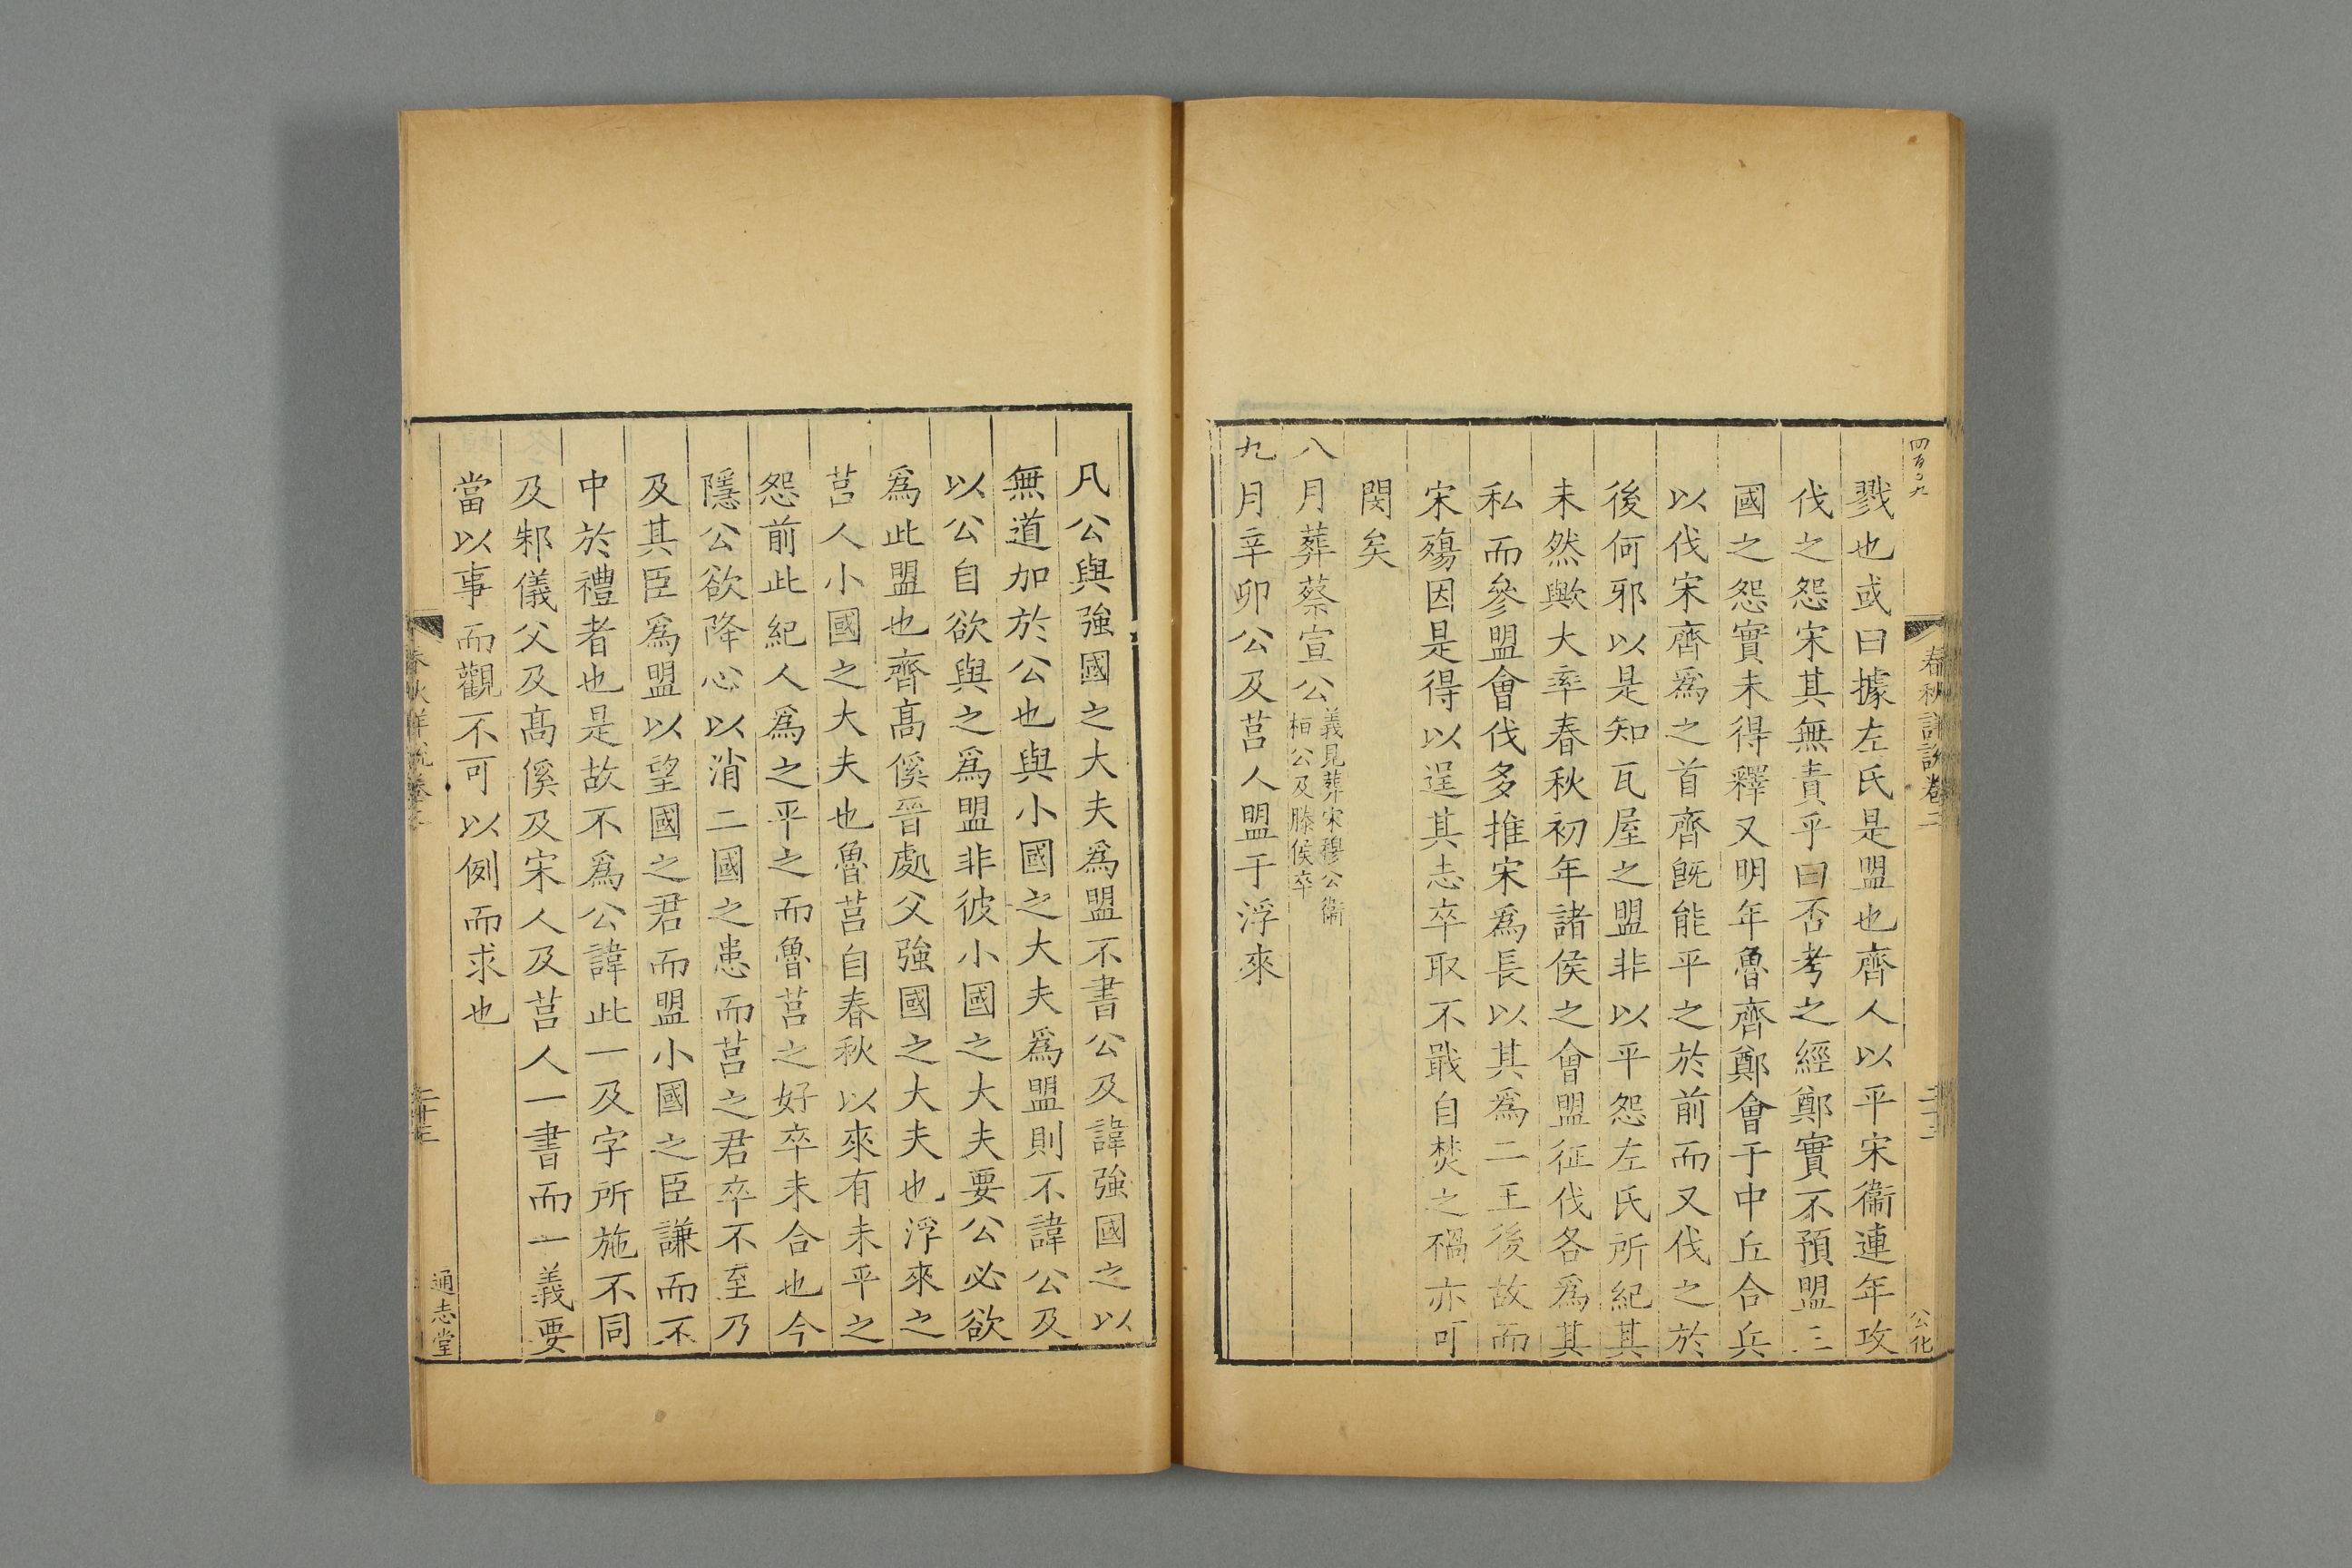 四百〇九
春秋詳說卷二
公化
戮也或曰據左氏是盟也齊人以平宋衞連年攻
伐之怨宋其無責乎曰否考之經鄭實不預盟三
國之怨實未得釋又明年魯齊鄭會于中丘合兵
以伐宋齊爲之首齊旣能平之於前而又伐之於
後何邪以是知瓦屋之盟非以平怨左氏所紀其
未然歟大率春秋初年諸侯之會盟征伐各爲其
私而參盟會伐多推宋爲長以其爲二王後故而
宋殤因是得以逞其志卒取不戢自焚之禍亦可
閔矣
八月葬蔡宣公義見葬宋穆公衞
桓公及滕侯卒
九月辛卯公及莒人盟于浮來
凡公與強國之大夫爲盟不書公及諱強國之以
無道加於公也與小國之大夫爲盟則不諱公及
以公自欲與之爲盟非彼小國之大夫要公必欲
爲此盟也齊高傒晉處父強國之大夫也浮來之
莒人小國之大夫也魯莒自春秋以來有未平之
怨前此紀人爲之平之而魯莒之好卒未合也今
隱公欲降心以消二國之患而莒之君卒不至乃
及其臣爲盟以望國之君而盟小國之臣謙而不
中於禮者也是故不爲公諱此一及字所施不同
及邾儀父及高傒及宋人及莒人一書而一義要
當以事而觀不可以例而求也
通志堂